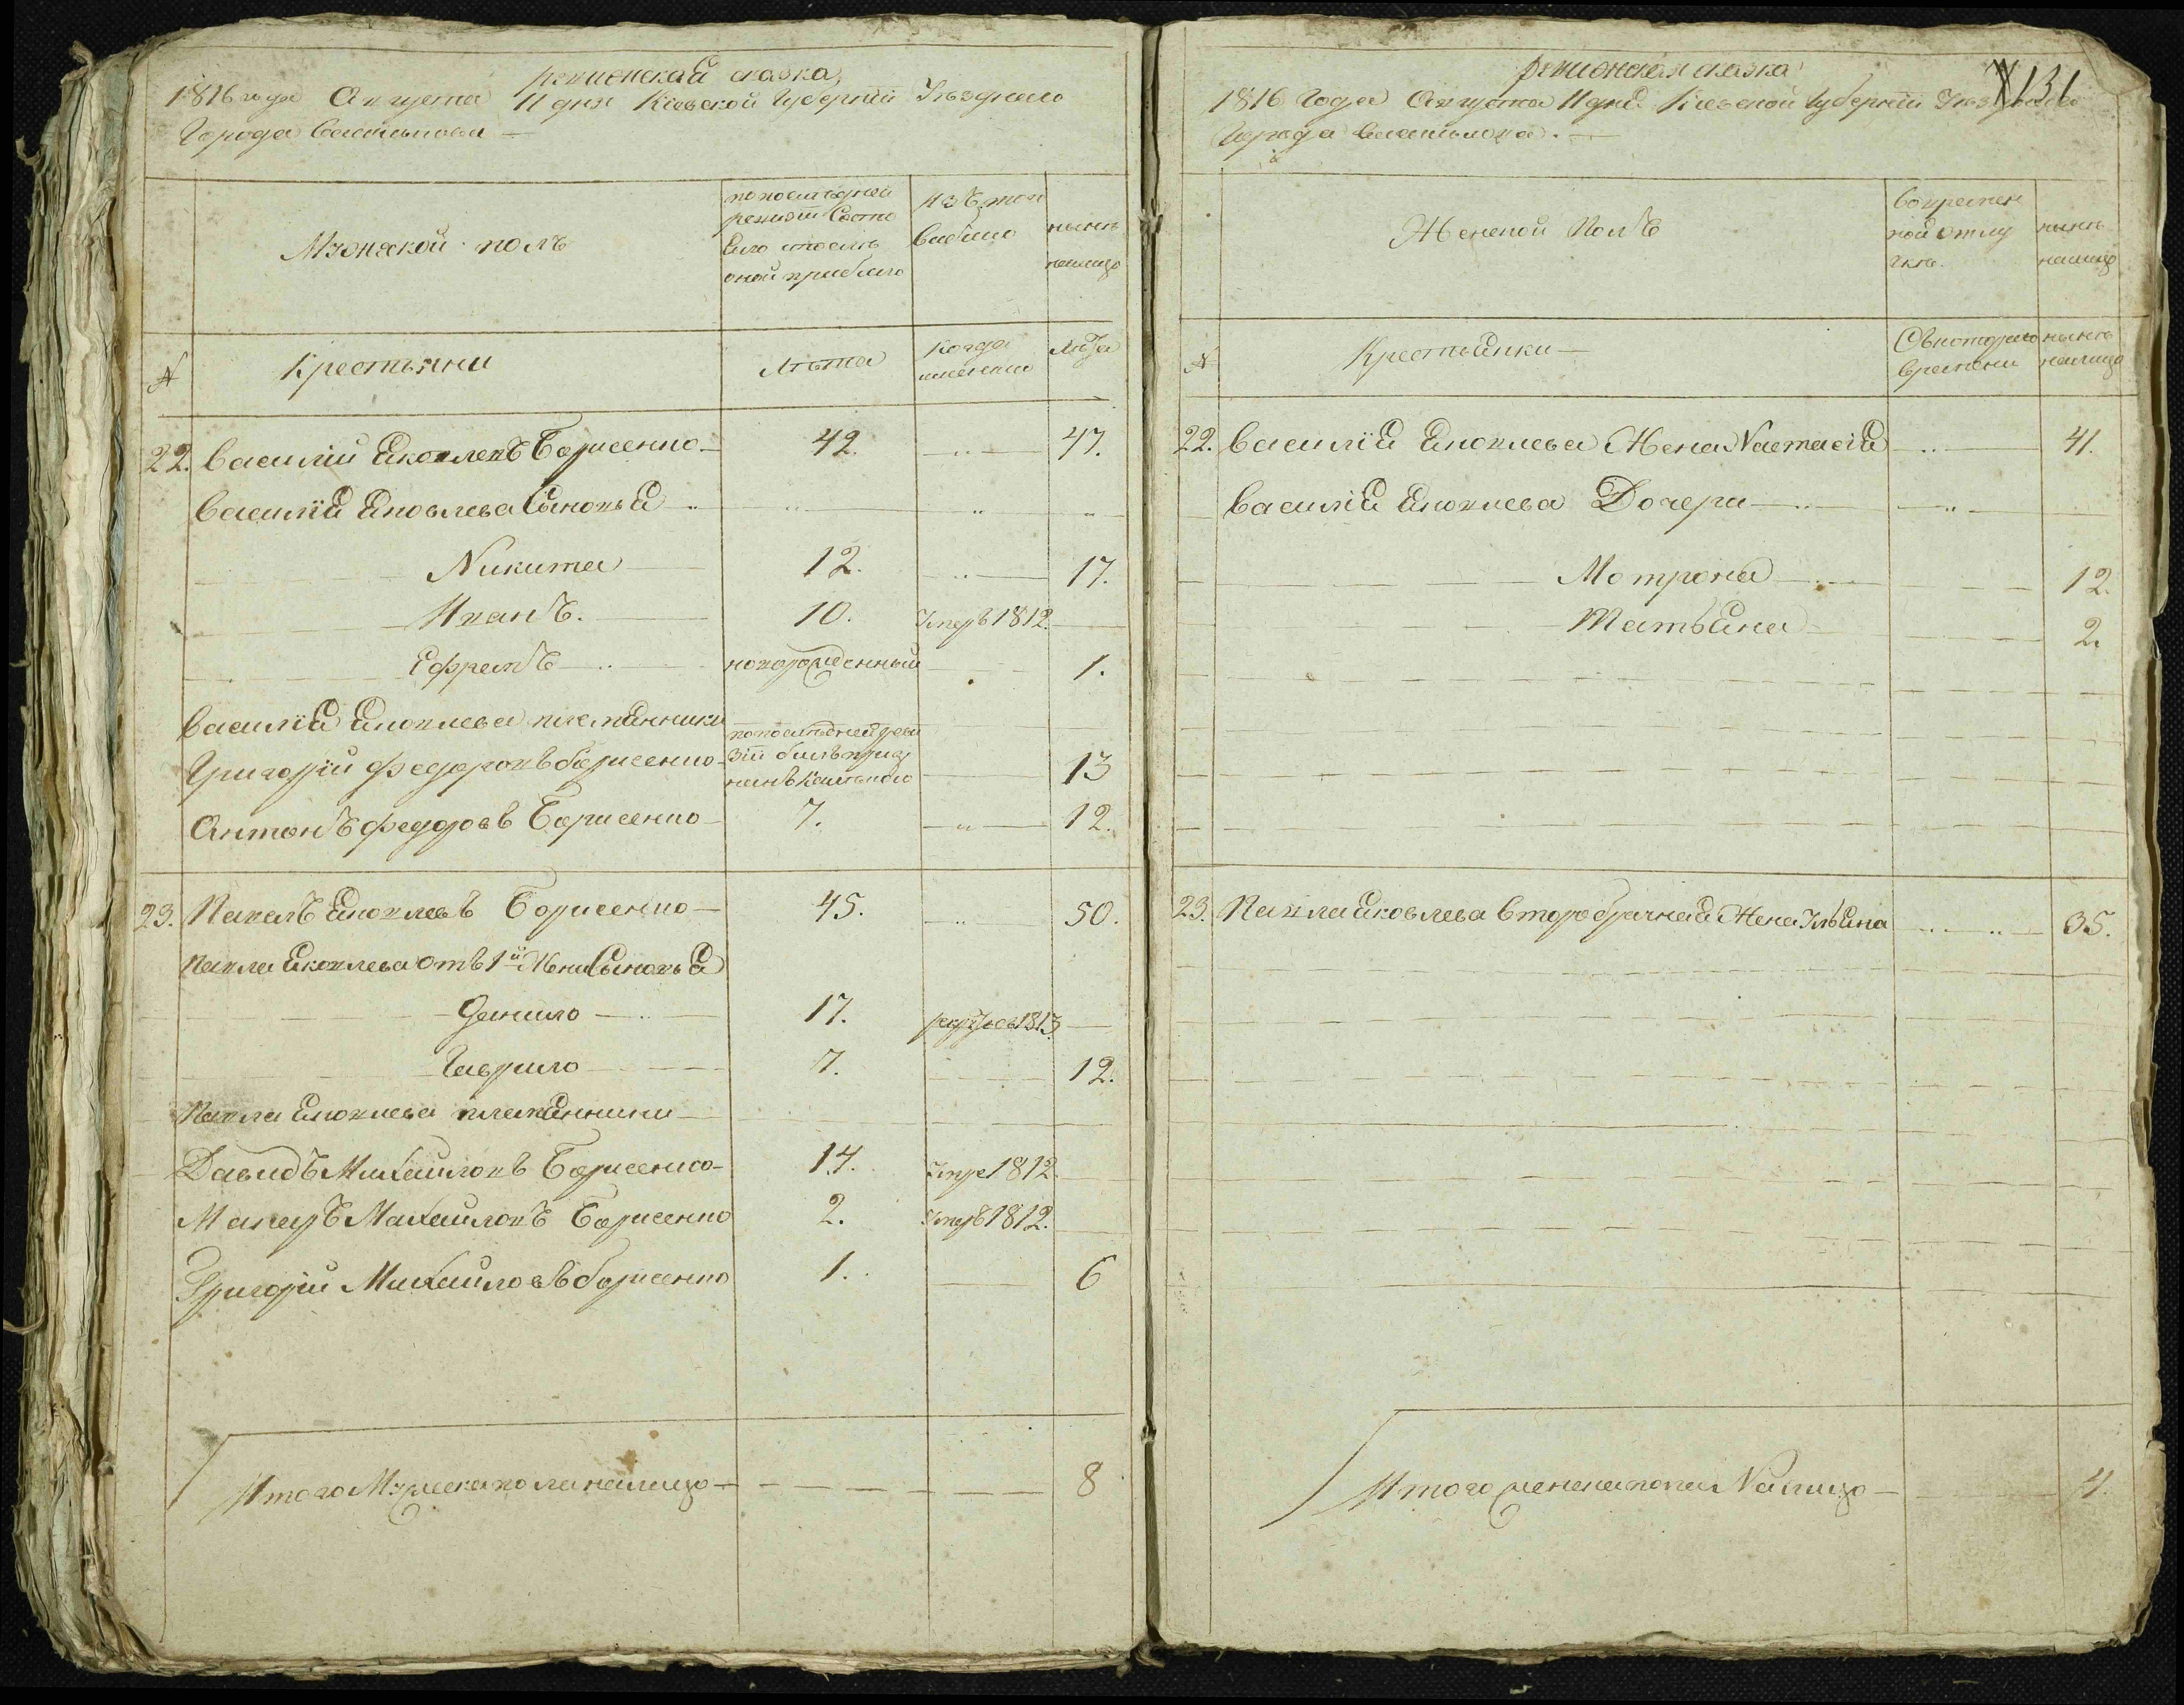 ревизская сказка
1816 года Августа 11 дня Кіевской Губерніи Уѣзднаго
Города Василькова —
Мужской полъ
по последней
ревизіи состо
яло и после
оной прибыло
изъ того
выбыло
нынѣ
налицо
№
Крестьяни
Лѣта
когда
именно
Лѣта
22. Василій Яковлевъ Борисенко — 42. 47.
Василія Яковлева Сыновья
Никита 12. 17.
Иванъ. 10. Умеръ 1812.
Ефремъ новорожденный 1.
Василія Яковлева племянники
по последней реви
Григорій Федоровъ борисенко зіи былъ 13
Антонъ Федоровъ Борисенко 7. 12.
23. Павелъ Яковлевъ Борисенко — 45. 50.
Павла Яковлева отъ 1й Жени Сыновья
Данило 17. рекрутъ 1813.
Гаврило 7. 12.
Павла Яковлева племянники
Давидъ Михайловъ Борисенко 14. Умре 1812.
Макаръ Михайловъ Борисенко 2. Умеръ 1812.
Григорій Михайловъ борисенко 1. 6
Итого Мужеска пола налицо 8
131
ревизская сказка
1816 Года Августа 11 дня Кіевской Губерніи Уѣзднаго
Города Василькова. —
Женской Полъ
Во времен
ной отлу
чкѣ.
нынѣ
налицо
№
Крестьянки —
Съ котораго
времени
нынѣ
налицо
22. Василія Яковлева Жена Настасія 41.
Василія Яковлева Дочери
Мотрона 12.
Татьяна 2.
23. Павла Яковлева второбрачная Жена Ульяна 35.
Итого женска пола Налицо — 4.